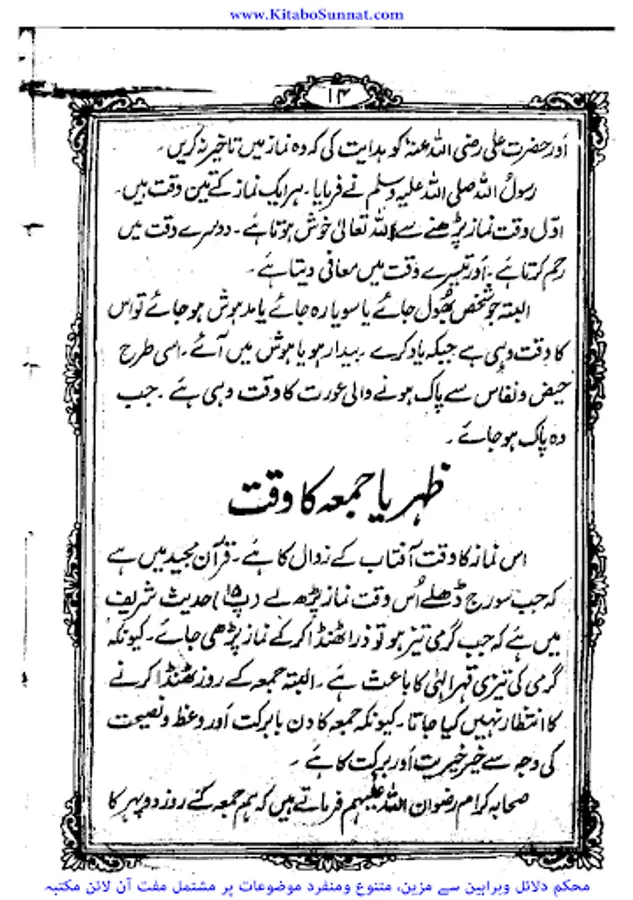 www.KitaboSunnat.com
۱۴
اَور حضرت علی رضی اللہ عنہ کو ہدایت کی کہ وہ نماز میں تاخیر نہ کریں۔
رسولُ اللہ صلی اللہ علیہ وسلم نے فرمایا۔ ہر ایک نماز کے تین وقت ہیں۔
اوّل وقت نماز پڑھنے سے اللہ تعالیٰ خوش ہوتا ہے۔ دوسرے وقت میں
رحم کرتا ہے۔ اَور تیسرے وقت میں معافی دیتا ہے۔
البتہ جو شخص بھول جائے یا سویا رہ جائے یا مدہوش ہو جائے تو اس
کا وقت وہی ہے جبکہ یاد کرے۔ بیدار ہو یا ہوش میں آئے۔ اسی طرح
حیض و نفاس سے پاک ہونے والی عورت کا وقت وہی ہے۔ جب
وہ پاک ہو جائے۔
ظہر یا جمعہ کا وقت
اس نماز کا وقت آفتاب کے زوال کا ہے۔ قرآن مجید میں ہے
کہ جب سورج ڈھلے اُس وقت نماز پڑھ لے (پ۱۵) حدیث شریف
میں ہے کہ جب گرمی تیز ہو تو ذرا ٹھنڈا کر کے نماز پڑھی جائے۔ کیونکہ
گرمی کی تیزی قہر الٰہی کا باعث ہے۔ البتہ جمعہ کے روز ٹھنڈا کرنے
کا انتظار نہیں کیا جاتا۔ کیونکہ جمعہ کا دن با برکت اَور وعظ و نصیحت
کی وجہ سے خیر خیریت اَور برکت کا ہے۔
صحابہ کرام رضوان اللہ علیہم فرماتے ہیں کہ ہم جمعہ کے روز دوپہر کا
محکم دلائل وبراہین سے مزین، متنوع ومنفرد موضوعات پر مشتمل مفت آن لائن مکتبہ